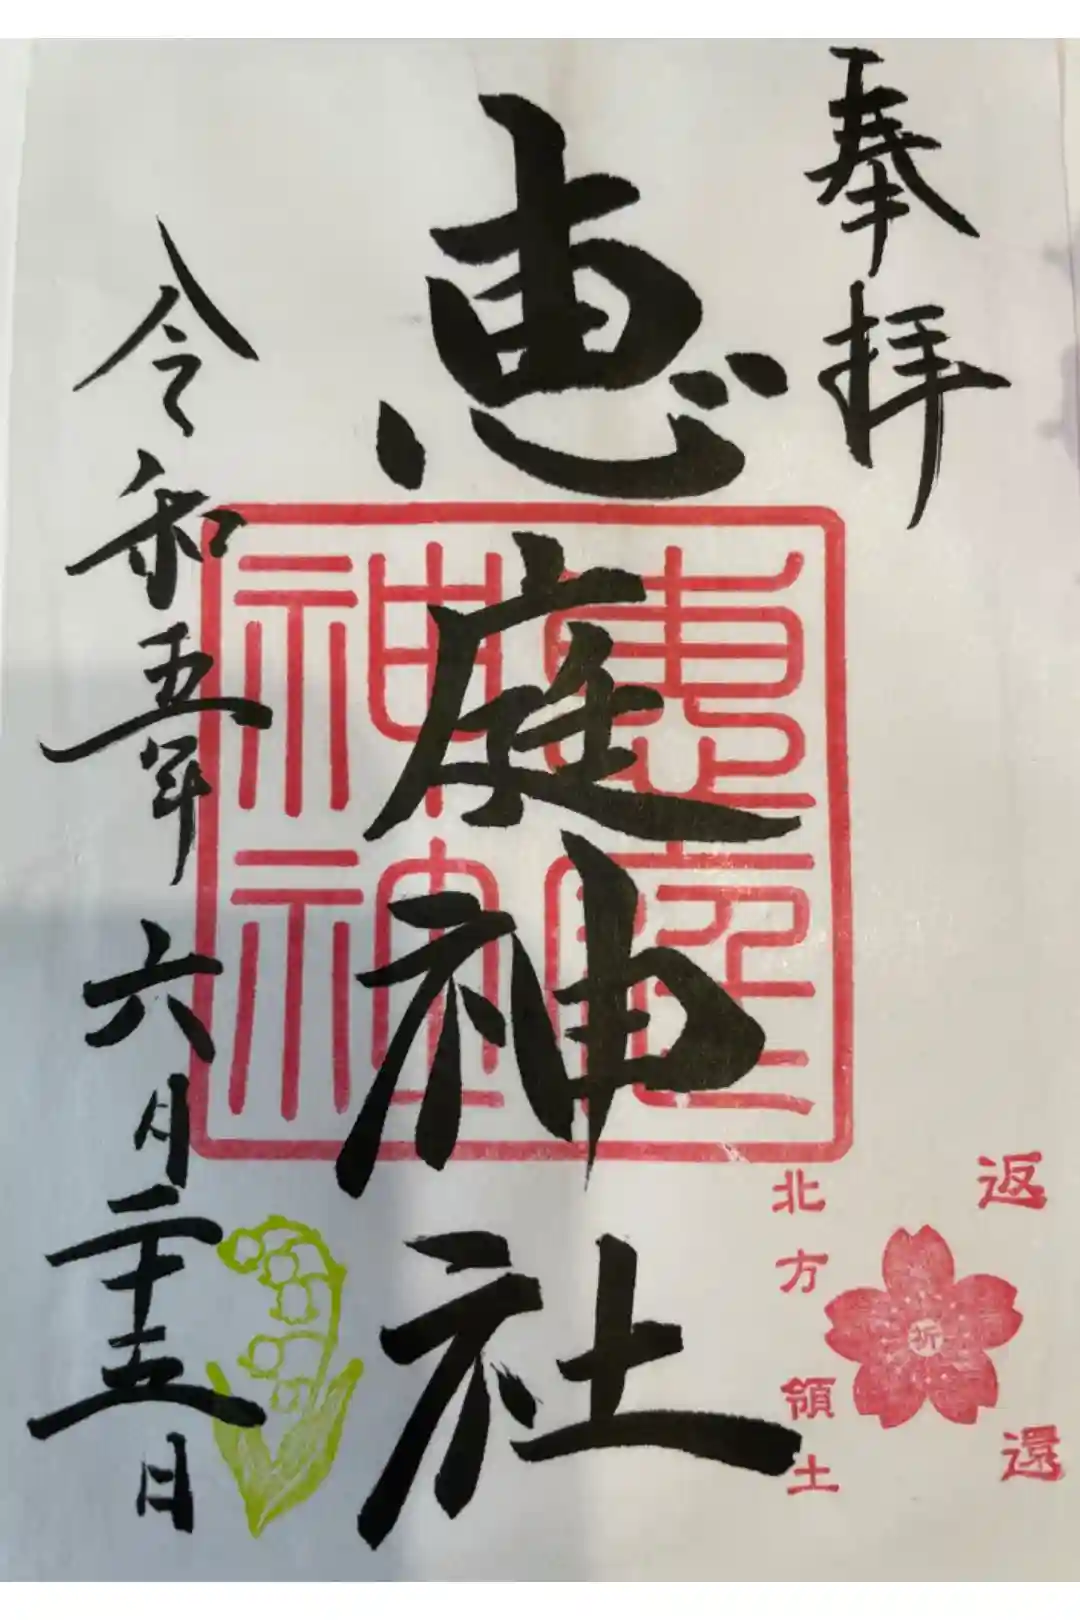 奉拝
恵庭神社
恵庭神社
令和五年六月二十五日
返還
祈
北方領土